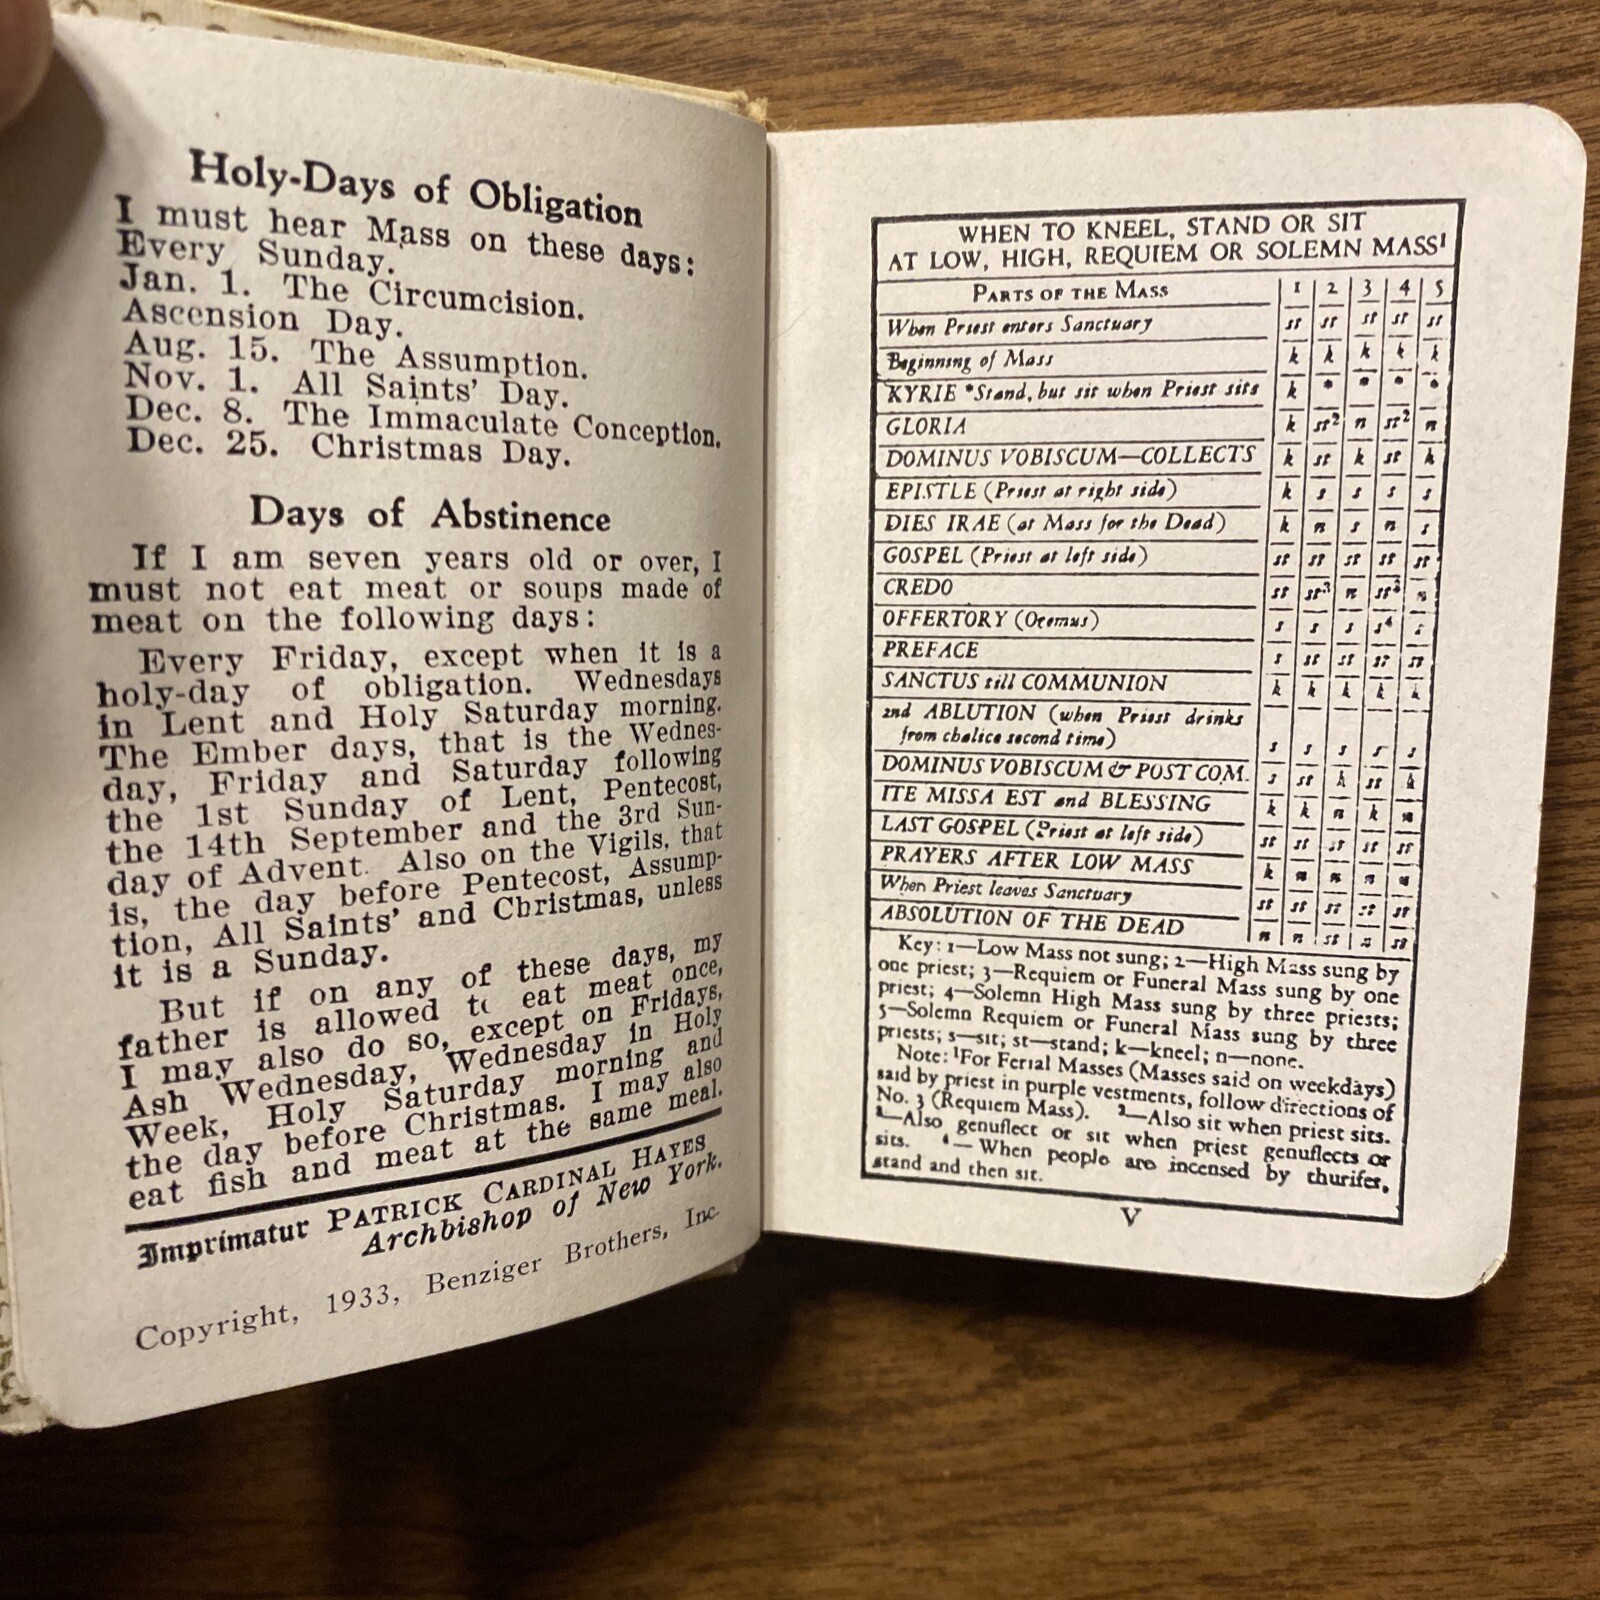 Holy-Days of Obligation
I must hear Mass on these days:
Every Sunday.
Jan. 1. The Circumcision.
Ascension Day.
Aug. 15. The Assumption.
Nov. 1. All Saints' Day.
Dec. 8. The Immaculate Conception.
Dec. 25. Christmas Day.
Days of Abstinence
If I am seven years old or over, I
must not eat meat or soups made of
meat on the following days:
Every Friday, except when it is a
holy-day of obligation. Wednesdays
in Lent and Holy Saturday morning.
The Ember days, that is the Wednes-
day, Friday and Saturday following
the 1st Sunday of Lent, Pentecost,
the 14th September and the 3rd Sun-
day of Advent. Also on the Vigils, that
is, the day before Pentecost, Assump-
tion, All Saints' and Christmas, unless
it is a Sunday.
But if on any of these days, my
father is allowed to eat meat once,
I may also do so, except on Fridays,
Ash Wednesday, Wednesday in Holy
Week, Holy Saturday morning and
the day before Christmas. I may also
eat fish and meat at the same meal.
Imprimatur PATRICK CARDINAL HAYES
Archbishop of New York.
Copyright, 1933, Benziger Brothers, Inc.
WHEN TO KNEEL, STAND OR SIT
AT LOW, HIGH, REQUIEM OR SOLEMN MASS¹
PARTS OF THE MASS 1 2 3 4 5
When Priest enters Sanctuary st st st st st
Beginning of Mass k k k k k
KYRIE *Stand, but sit when Priest sits k * * * *
GLORIA k st² n st² n
DOMINUS VOBISCUM—COLLECTS k st k st k
EPISTLE (Priest at right side) k s s s s
DIES IRAE (at Mass for the Dead) k n s n s
GOSPEL (Priest at left side) st st st st st
CREDO st st³ n st³ n
OFFERTORY (Oremus) s s s s⁴ s
PREFACE s st st st st
SANCTUS till COMMUNION k k k k k
2nd ABLUTION (when Priest drinks
from chalice second time) s s s s s
DOMINUS VOBISCUM & POST COM. s st k st k
ITE MISSA EST and BLESSING k k n k n
LAST GOSPEL (Priest at left side) st st st st st
PRAYERS AFTER LOW MASS k n n n n
When Priest leaves Sanctuary st st st st st
ABSOLUTION OF THE DEAD n n st n st
Key: 1—Low Mass not sung; 2—High Mass sung by
one priest; 3—Requiem or Funeral Mass sung by one
priest; 4—Solemn High Mass sung by three priests;
5—Solemn Requiem or Funeral Mass sung by three
priests; s—sit; st—stand; k—kneel; n—none.
Note: ¹For Ferial Masses (Masses said on weekdays)
said by priest in purple vestments, follow directions of
No. 3 (Requiem Mass). ²—Also sit when priest sits.
³—Also genuflect or sit when priest genuflects or
sits. ⁴—When people are incensed by thurifer,
stand and then sit.
V